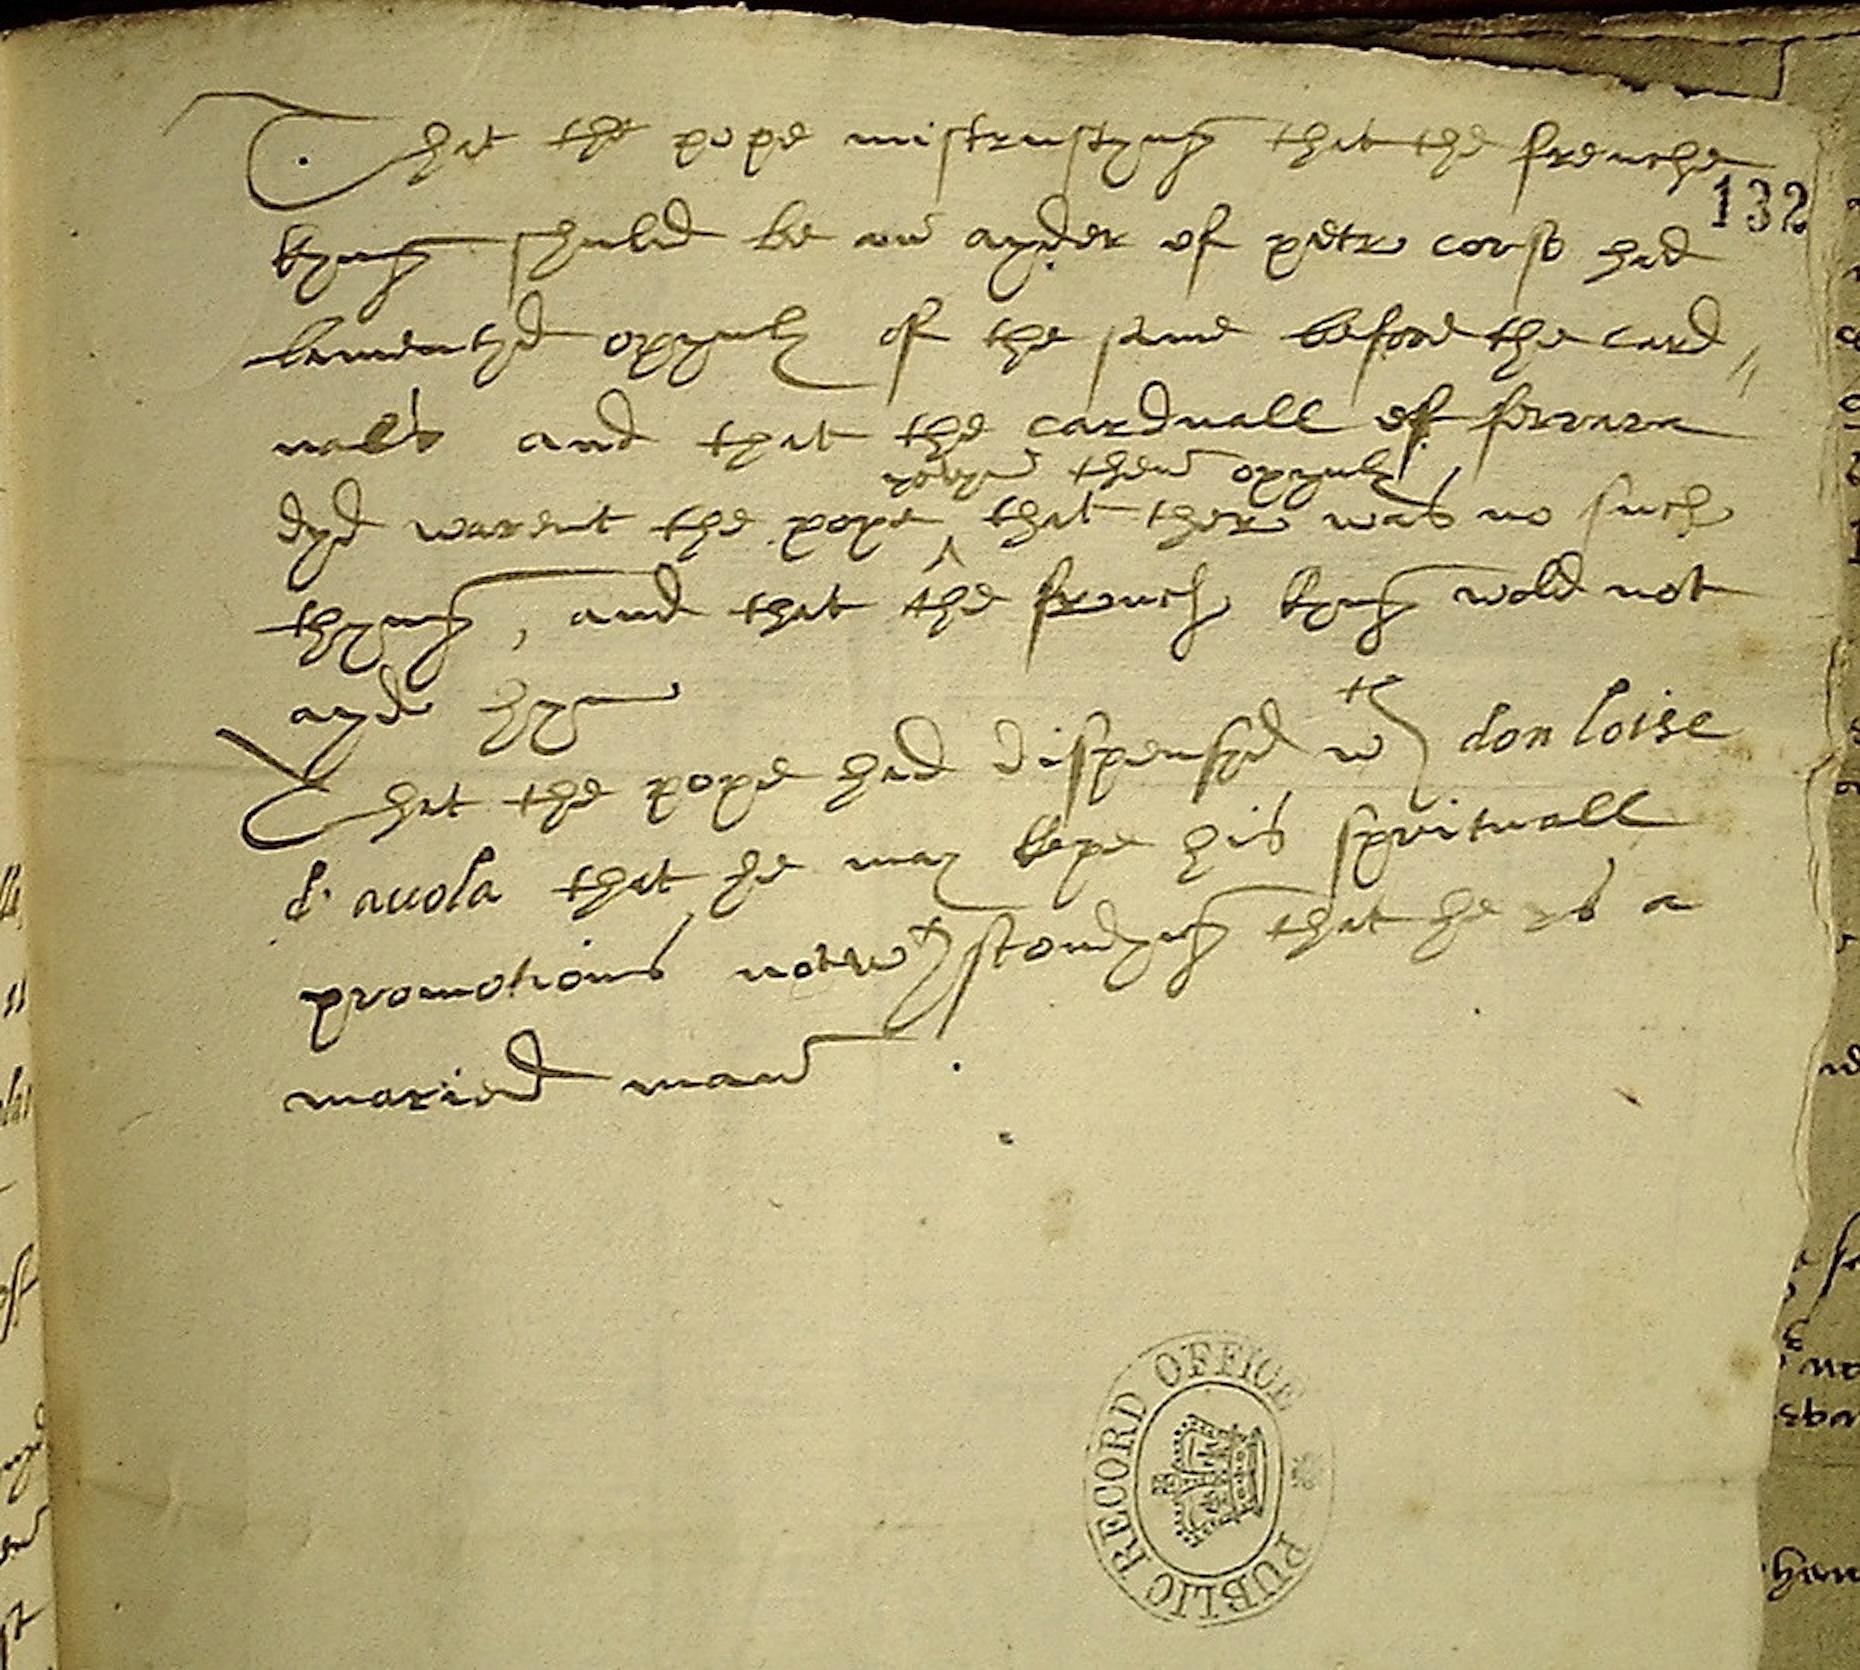 That the pope mistrustyng that the frenche
132
kyng shuld be an ayder of petro corso had
lamentyd opynly of the same before the card//
nals and that the cardnall of ferrara
them opynly
dyd warent the pope ^ that ther was no such
thyng, and that the french kyng wold not
ayde hym
That the pope had dispensyd wth don loise
d'auola that he may kepe his sprituall
promotions notwthstondyng that he is a
maried man
PUBLIC RECORD OFFICE